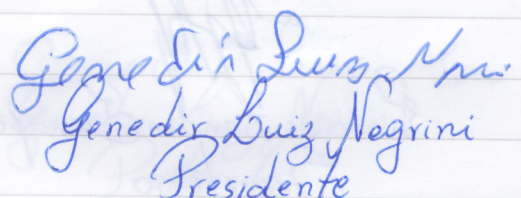 Genedir Luiz N
Genedir Luiz Negrini
Presidente